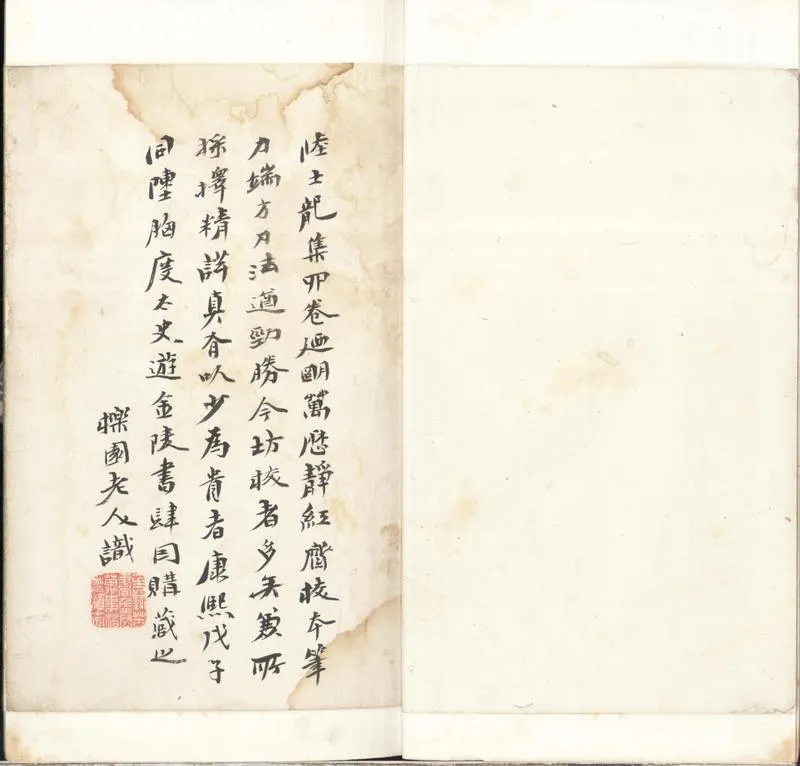 陸士龍集四卷廼明萬歷靜紅齋校本筆
力端方刀法遒勁勝今坊校者多矣兼所
採擇精詳真有以少爲貴者康熙戊子
同胸度太史遊金陵書肆因購藏之
櫟園老人識